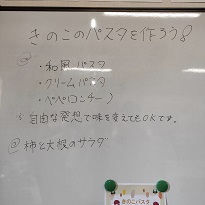 きのこのパスタを作ろう!
@
・和風パスタ
・クリームパスタ
・ペペロンチーノ
自由な発想で味を変えてもOKです。
@柿と大根のサラダ
きのこパスタ